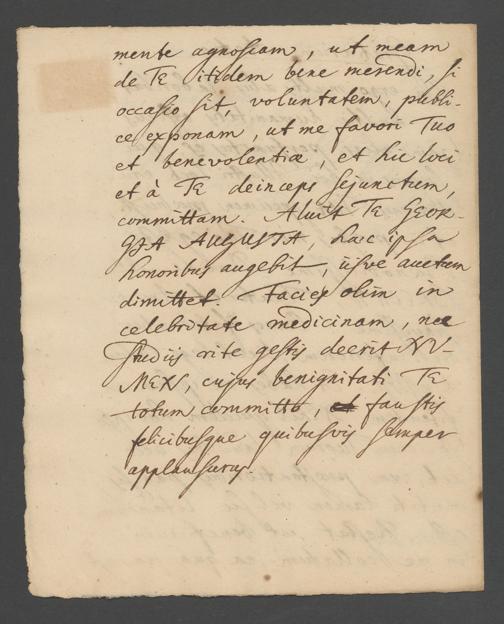 mente agnoscam, ut meam
de TE itidem bene merendi, si
occasio sit, voluntatem, publi-
ce exponam, ut me favori Tuo
et benevolentiæ, et hic loci
et à TE deinceps sejunctum,
committam. Aluit TE GEOR-
GIA AUGUSTA, hæc ipsa
honoribus augebit, iisve auctum
dimittet. Facies olim in
celebritate medicinam, nec
studiis rite gestis deerit NU-
MEN, cujus benignitati TE
totum committo, faustis
felicibusque quibusvis semper
applausurus.